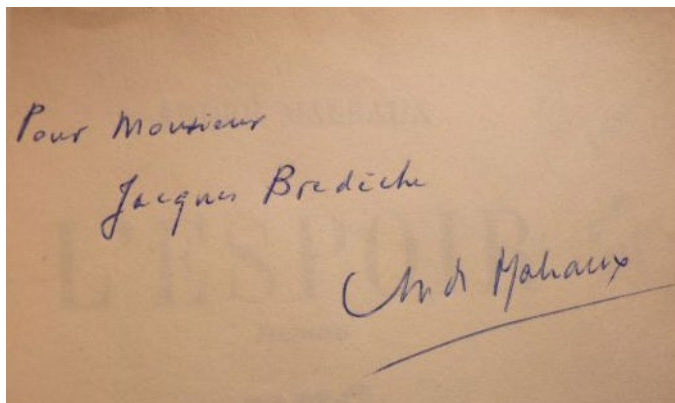 Pour Monsieur
Jacques Bredèche
André Malraux
L'ESPOIR